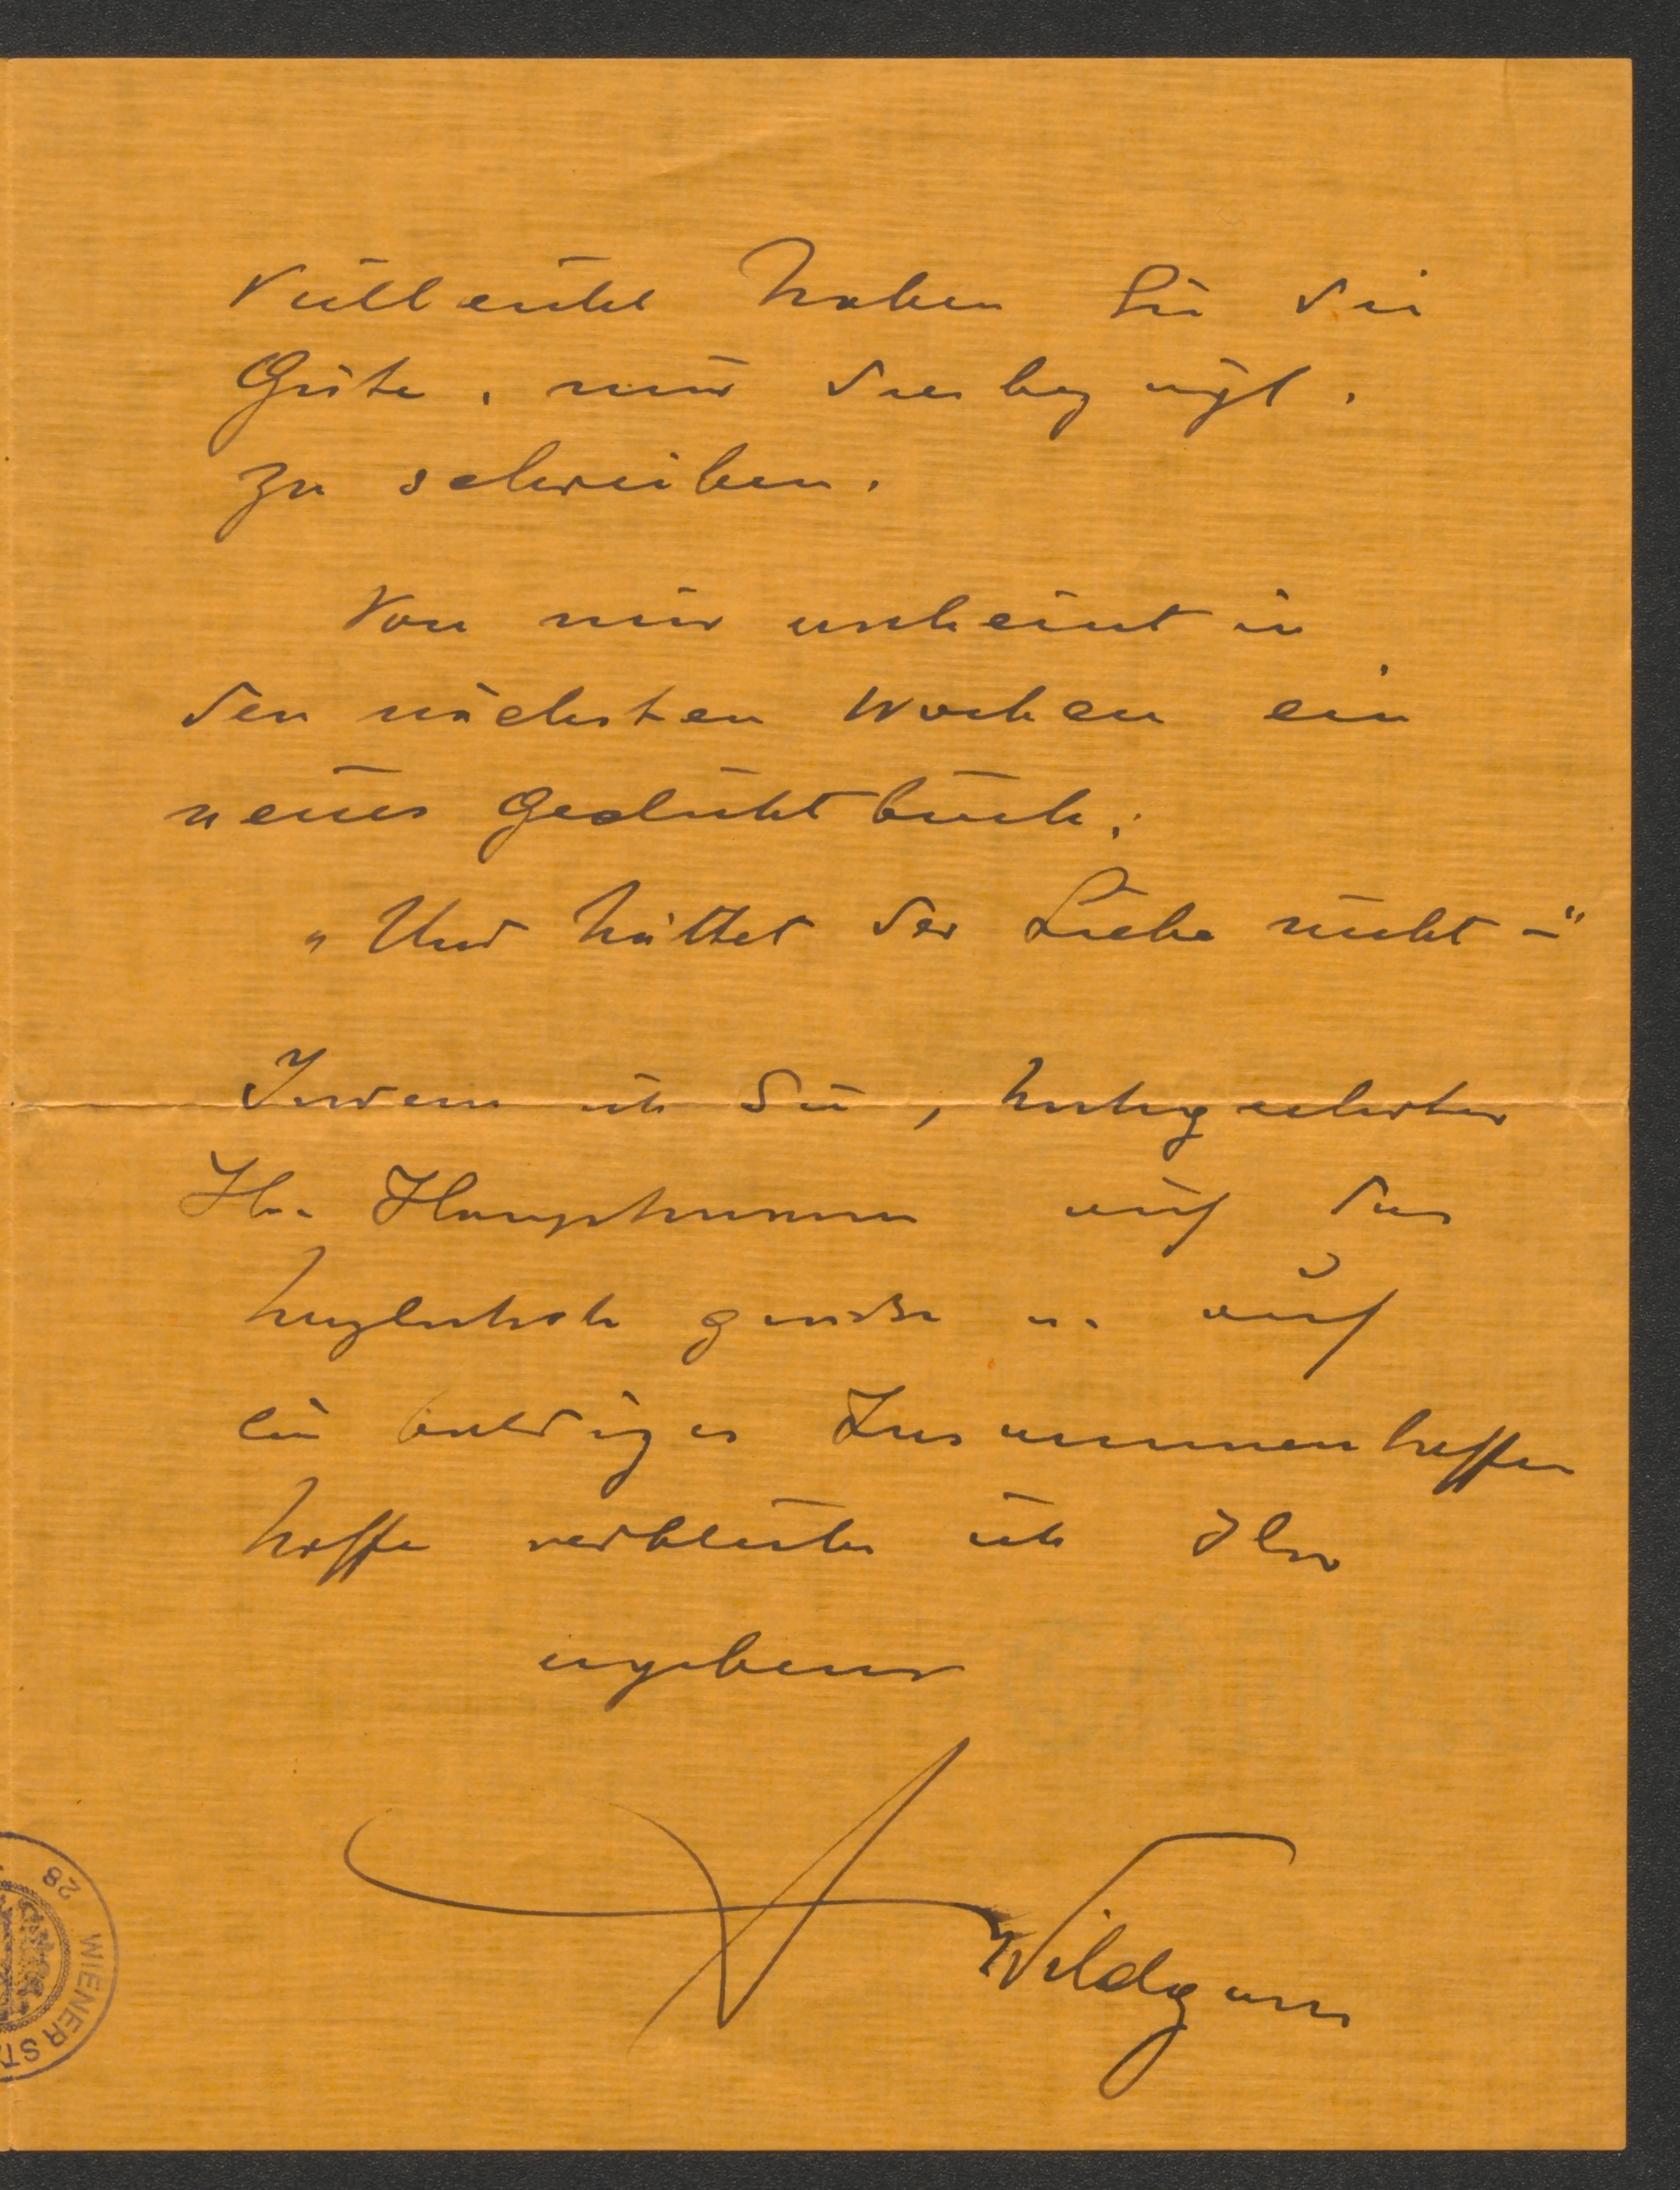 Vielleicht haben Sie die
Güte, mir diesbezügl.
zu schreiben.
Von mir erscheint in
den nächsten Wochen ein
neues Gedichtbuch:
„Und hättet der Liebe nicht –"
Indem ich Sie, hochgeehrter
Hr. Hauptmann auf das
herzlichste grüße u. auf
ein baldiges Zusammentreffen
hoffe verbleibe ich Ihr
ergebener
A Wildgans
28 WIENER ST